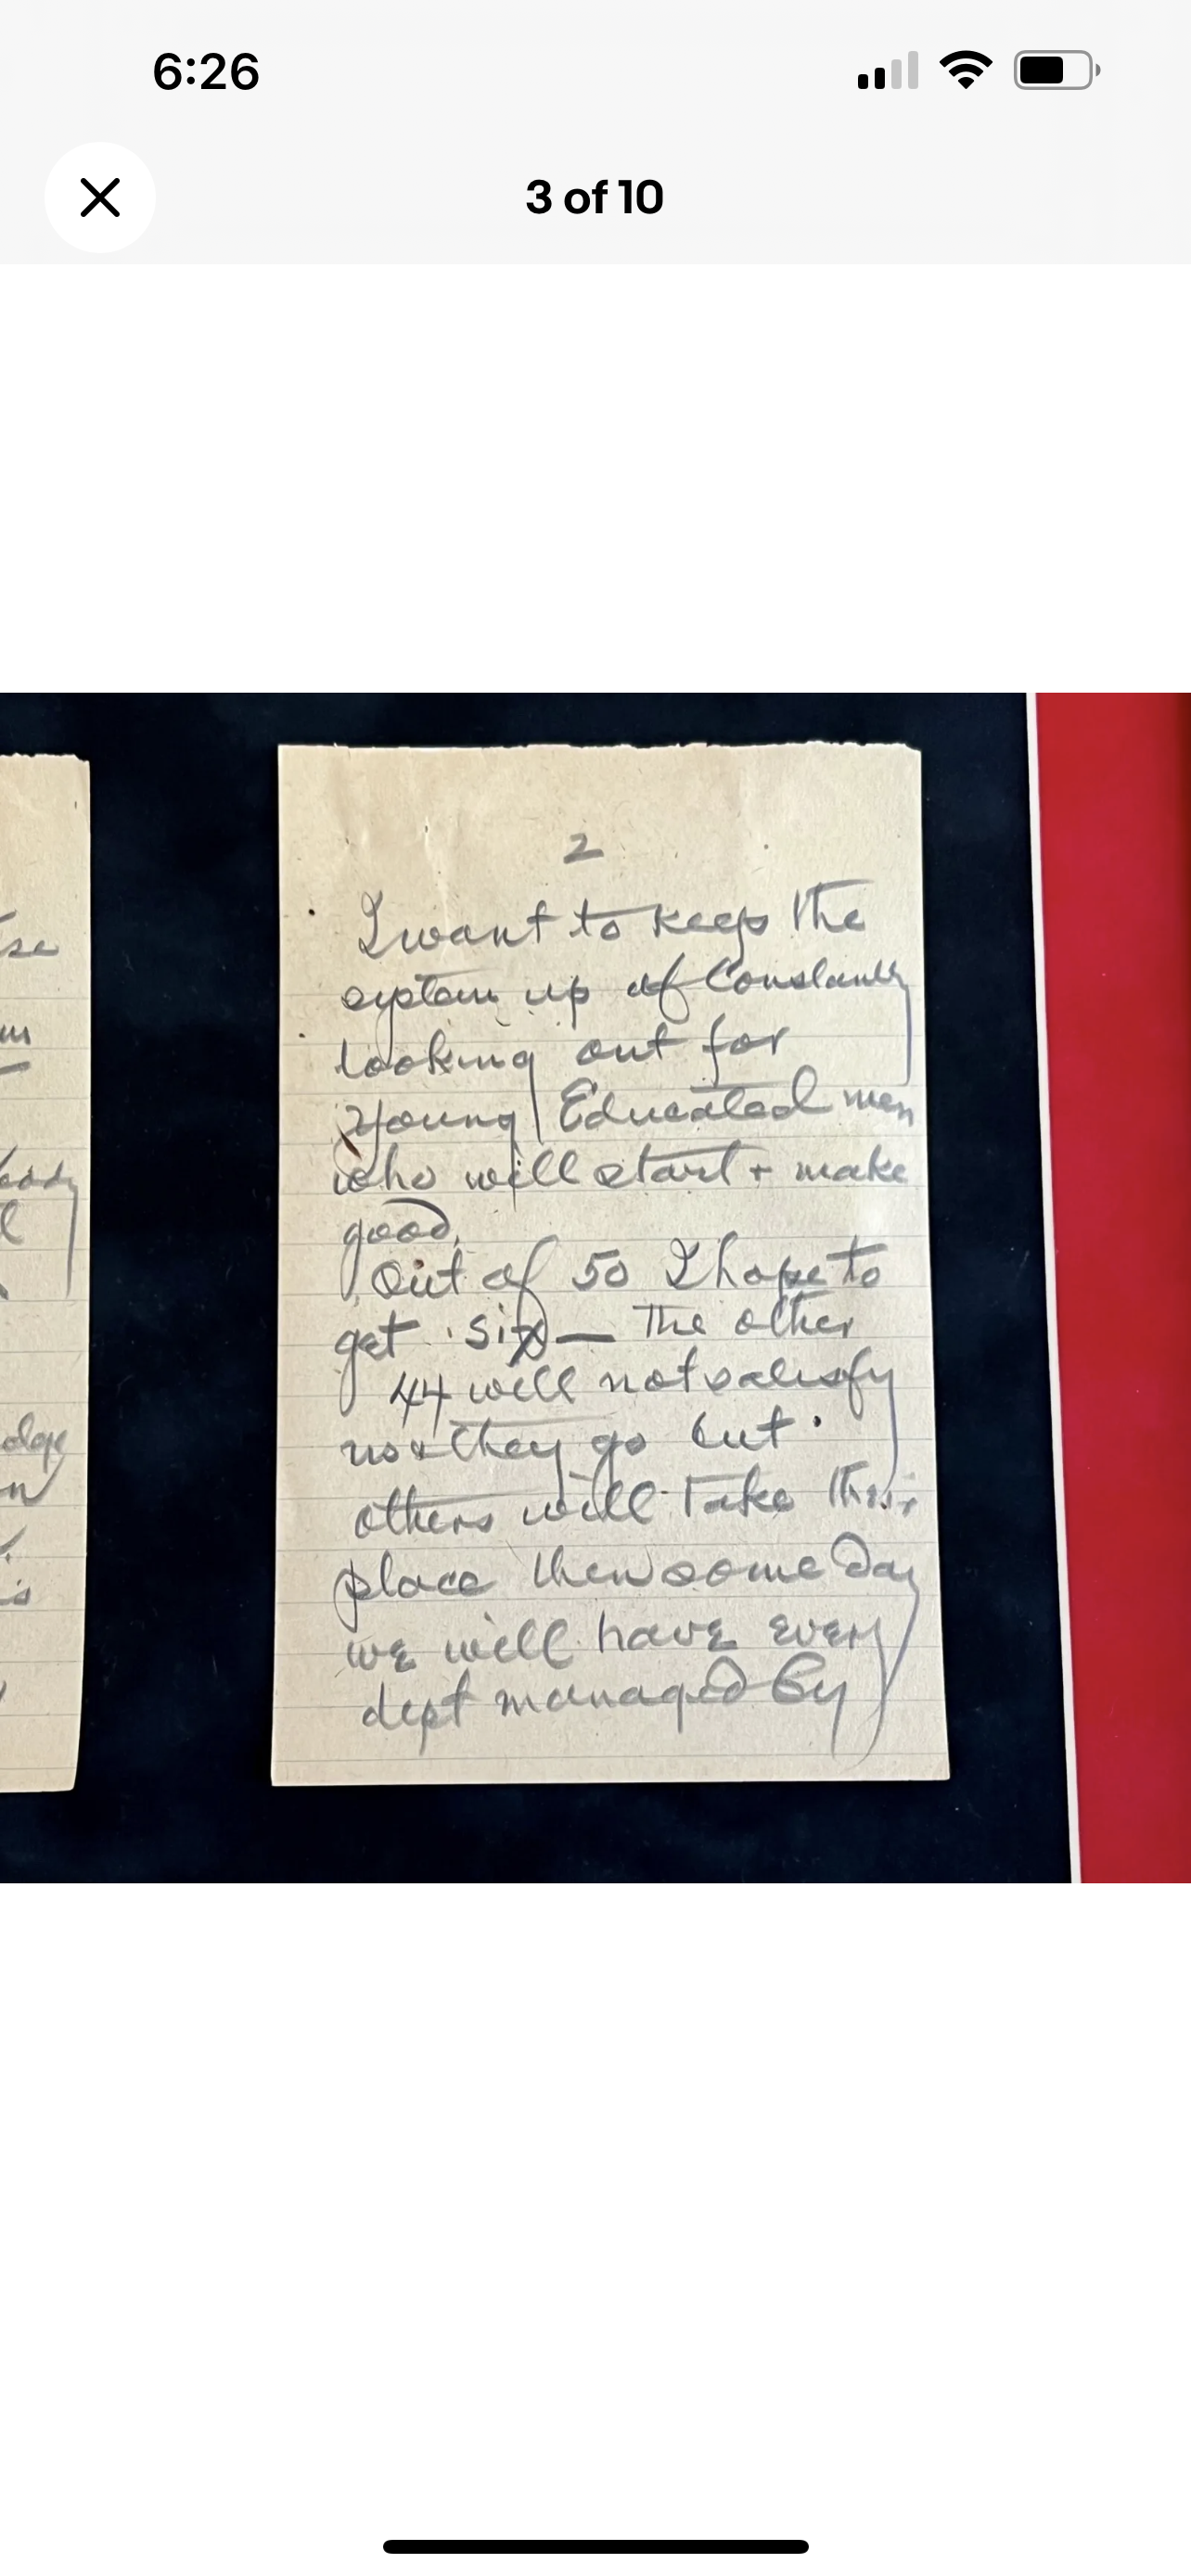 6:26
3 of 10
2
I want to keep the
system up of Constantly
looking out for
young Educated men
who will start + make
good.
Out of 50 I hope to
get six — The other
44 will not satisfy
us & they go but
others will take their
place then some day
we will have every
dept managed by
se
m
eady
l
edge
n
is